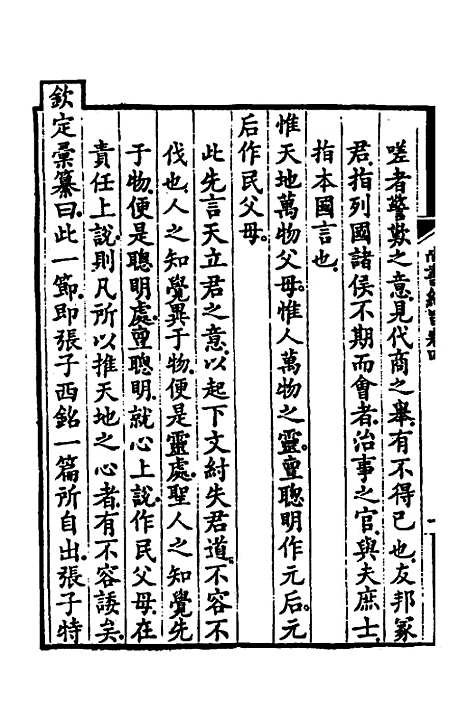 嗟者警歎之意見代商之舉有不得已也友邦冢
君指列國諸侯不期而會者治事之官與夫庶士
指本國言也
惟天地萬物父母惟人萬物之靈亶聰明作元后元
后作民父母
此先言天立君之意以起下文紂失君道不容不
伐也人之知覺異于物便是靈處聖人之知覺先
于物便是聰明處亶聰明就心上說作民父母在
責任上說則凡所以推天地之心者有不容諉矣
欽定彚纂曰此一節即張子西銘一篇所自出張子特